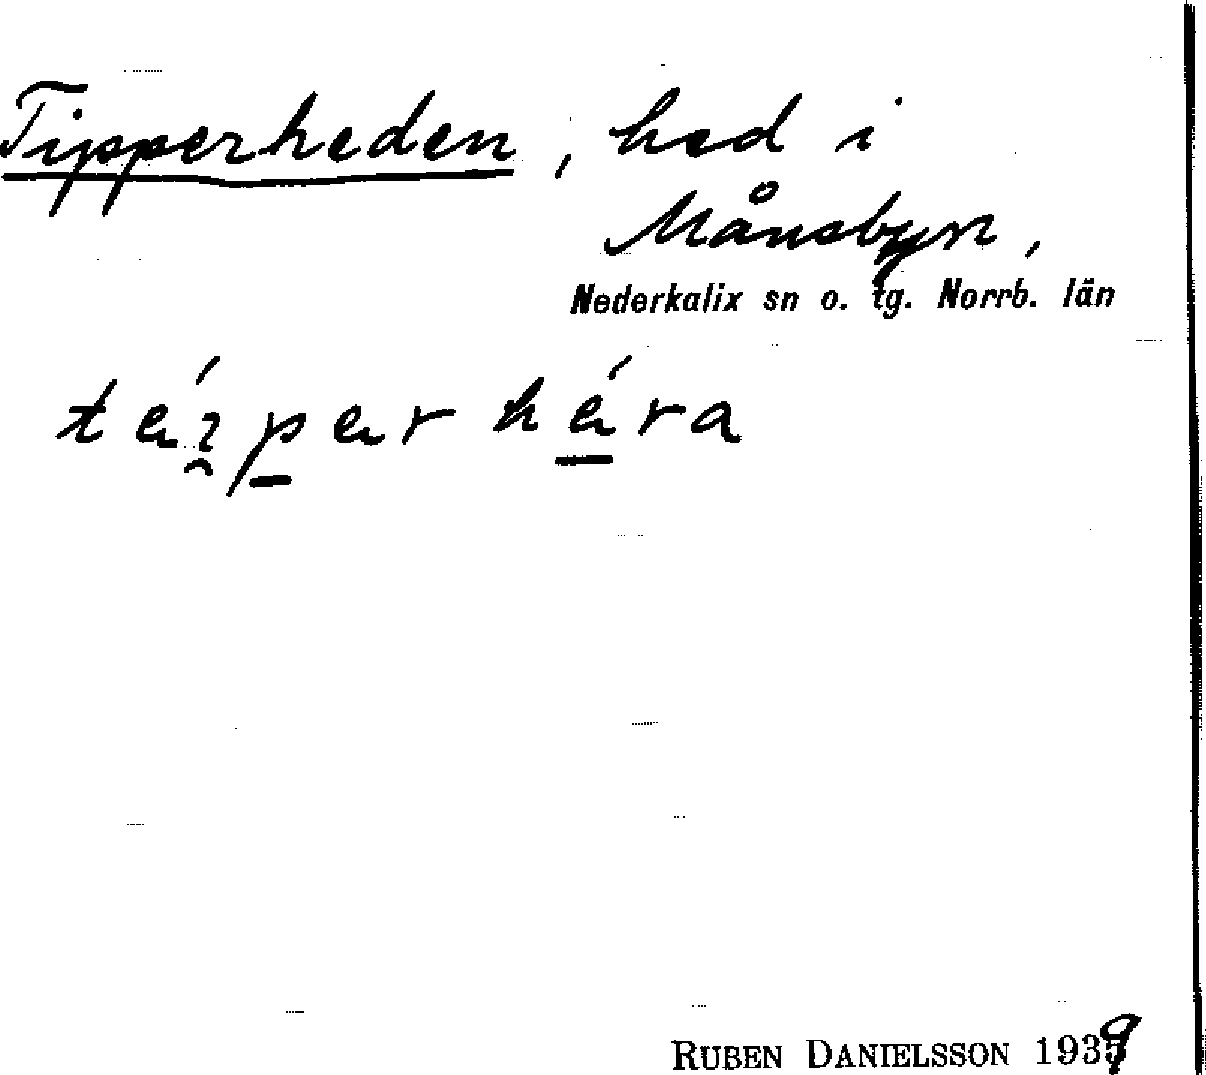 Tipperheden, hed i
Månsbyn,
Nederkalix sn o. tg. Norrb. län
teiper héra
RUBEN DANIELSSON 1939